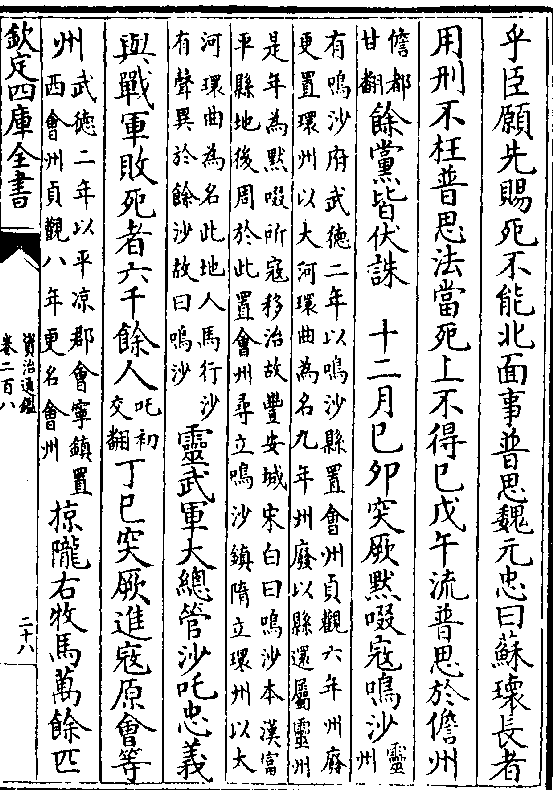 乎臣願先賜死不能北面事普思魏元忠曰蘇瓌長者
用刑不枉普思法當死上不得已戊午流普思於儋州
儋都
甘翻
餘黨皆伏誅　十二月己卯突厥默啜寇鳴沙
靈州
有鳴沙府武徳二年以鳴沙縣置會州貞觀六年州廢
更置環州以大河環曲為名九年州廢以縣還屬靈州
是年為默啜所寇移治故豐安城宋白曰鳴沙本漢富
平縣地後周於此置會州尋立鳴沙鎮隋立環州以大
河環曲為名此地人馬行沙
有聲異於餘沙故曰鳴沙
靈武軍大總管沙吒忠義
與戰軍敗死者六千餘人
吒初
交翻
丁巳突厥進寇原會等
州
武徳二年以平凉郡會寧鎮置
西會州貞觀八年更名會州
掠隴右牧馬萬餘匹
欽定四庫全書
資治通鑑
卷二百八
二十八